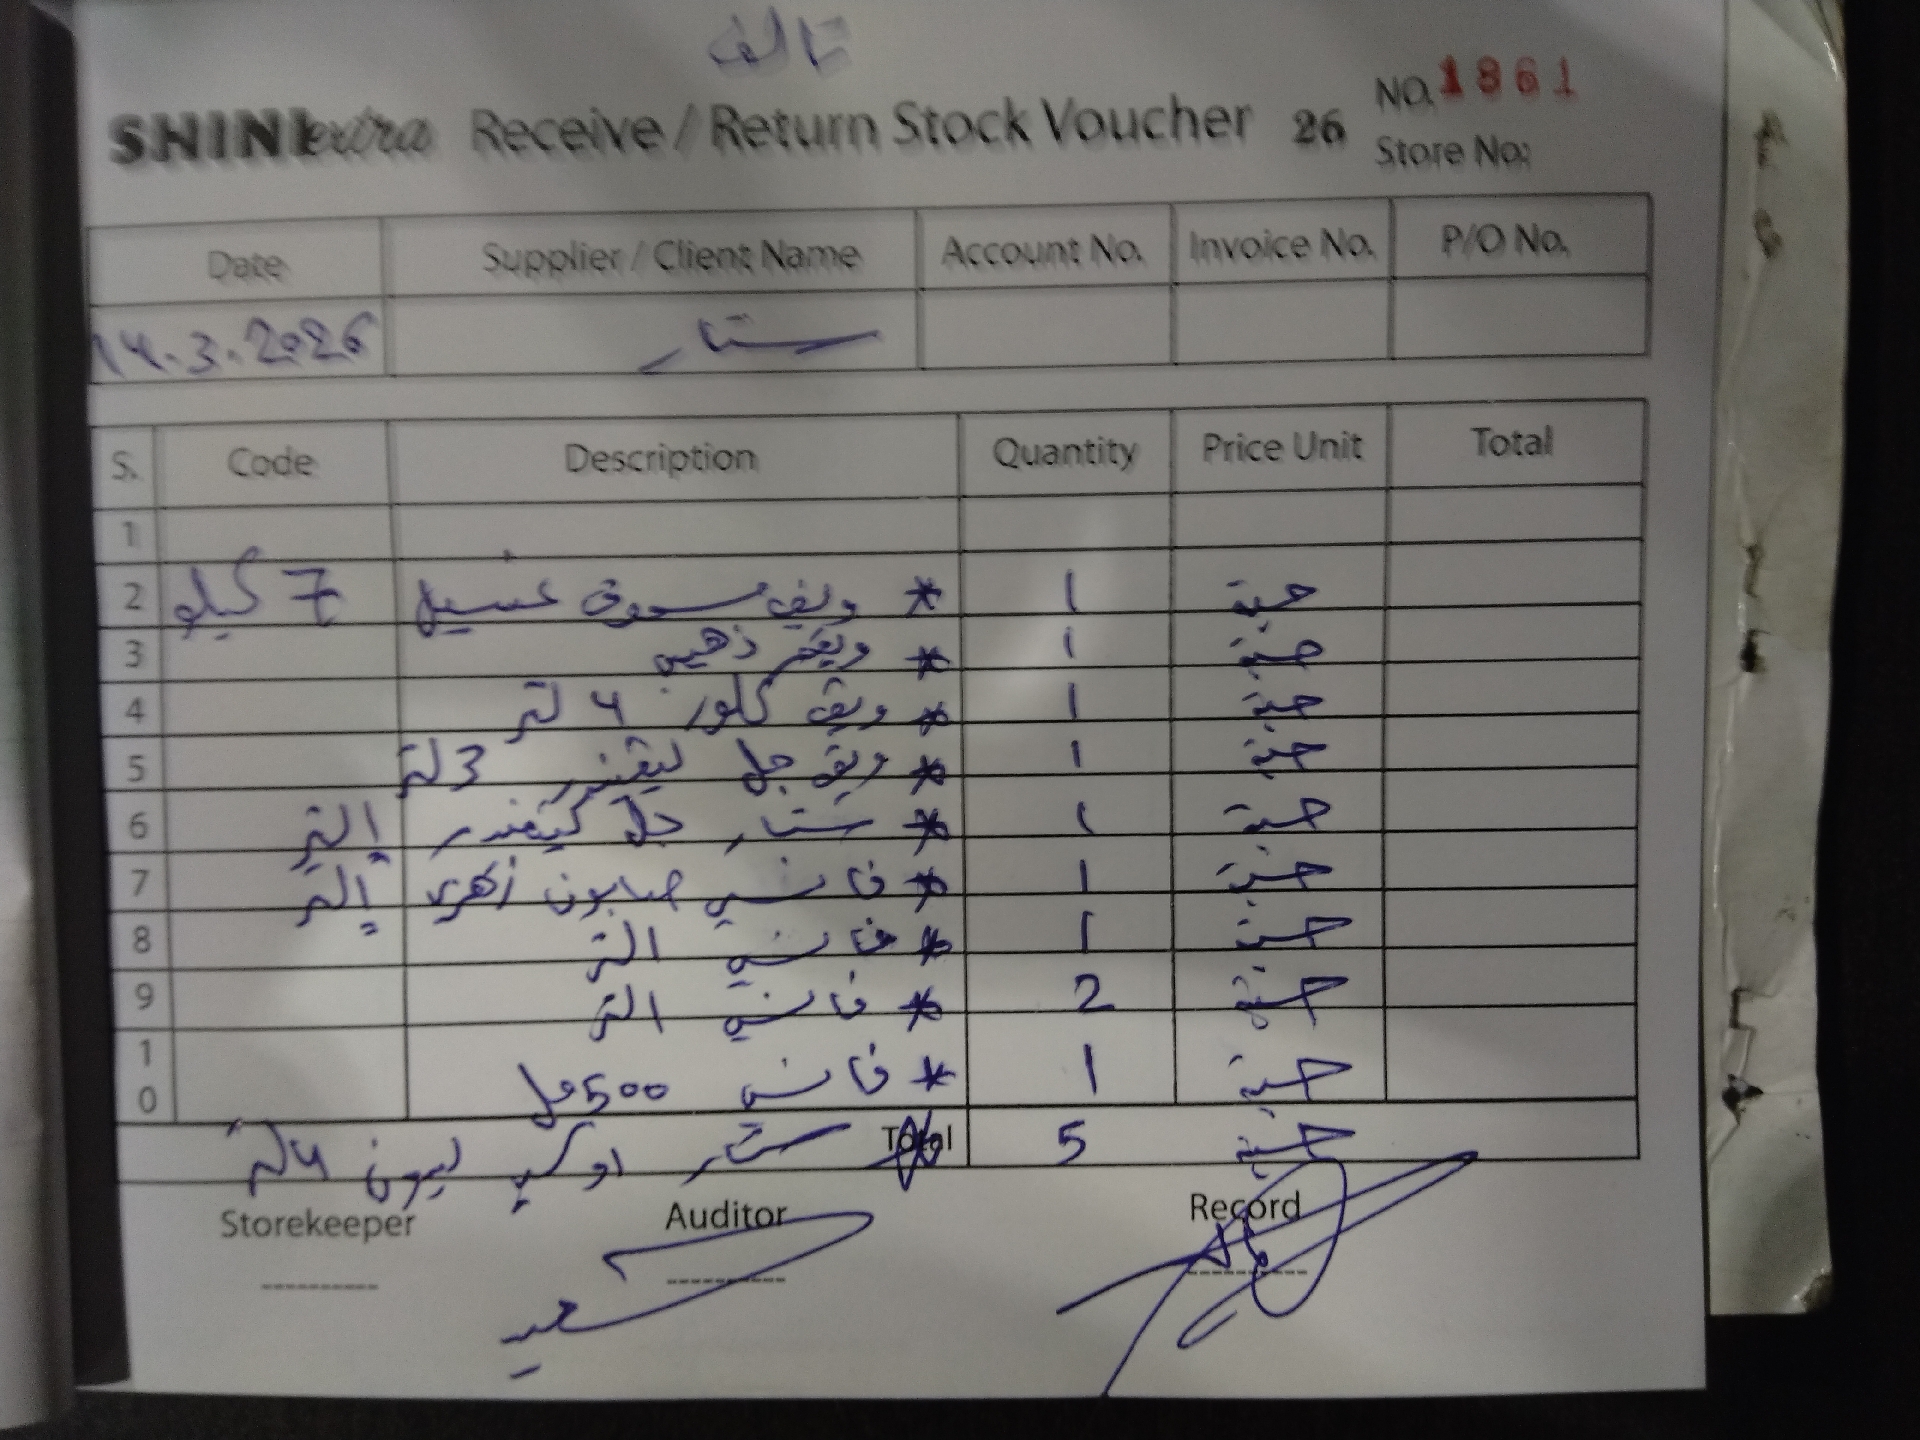 تالف
SHINExtra Receive / Return Stock Voucher 26 NO. 1861
Store No:
Date Supplier / Client Name Account No. Invoice No. P/O No.
14.3.2026 ستار
S. Code Description Quantity Price Unit Total
1
2 7 كيلو * ويف مسحوق غسيل 1 حبة
3 * ويف 1 حبة
4 * ويف كلور 4 لتر 1 حبة
5 * ويف جل 3 لتر 1 حبة
6 * ستار جل 1 لتر 1 حبة
7 * فانسي صابون زهري 1 لتر 1 حبة
8 * فانسي 1 لتر 1 حبة
9 * فانسي 1 لتر 2 حبة
10 * فانسي 500 مل 1 حبة
Total * ستار ليمون 4 لتر 5 حبة
Storekeeper Auditor Record
سعيد